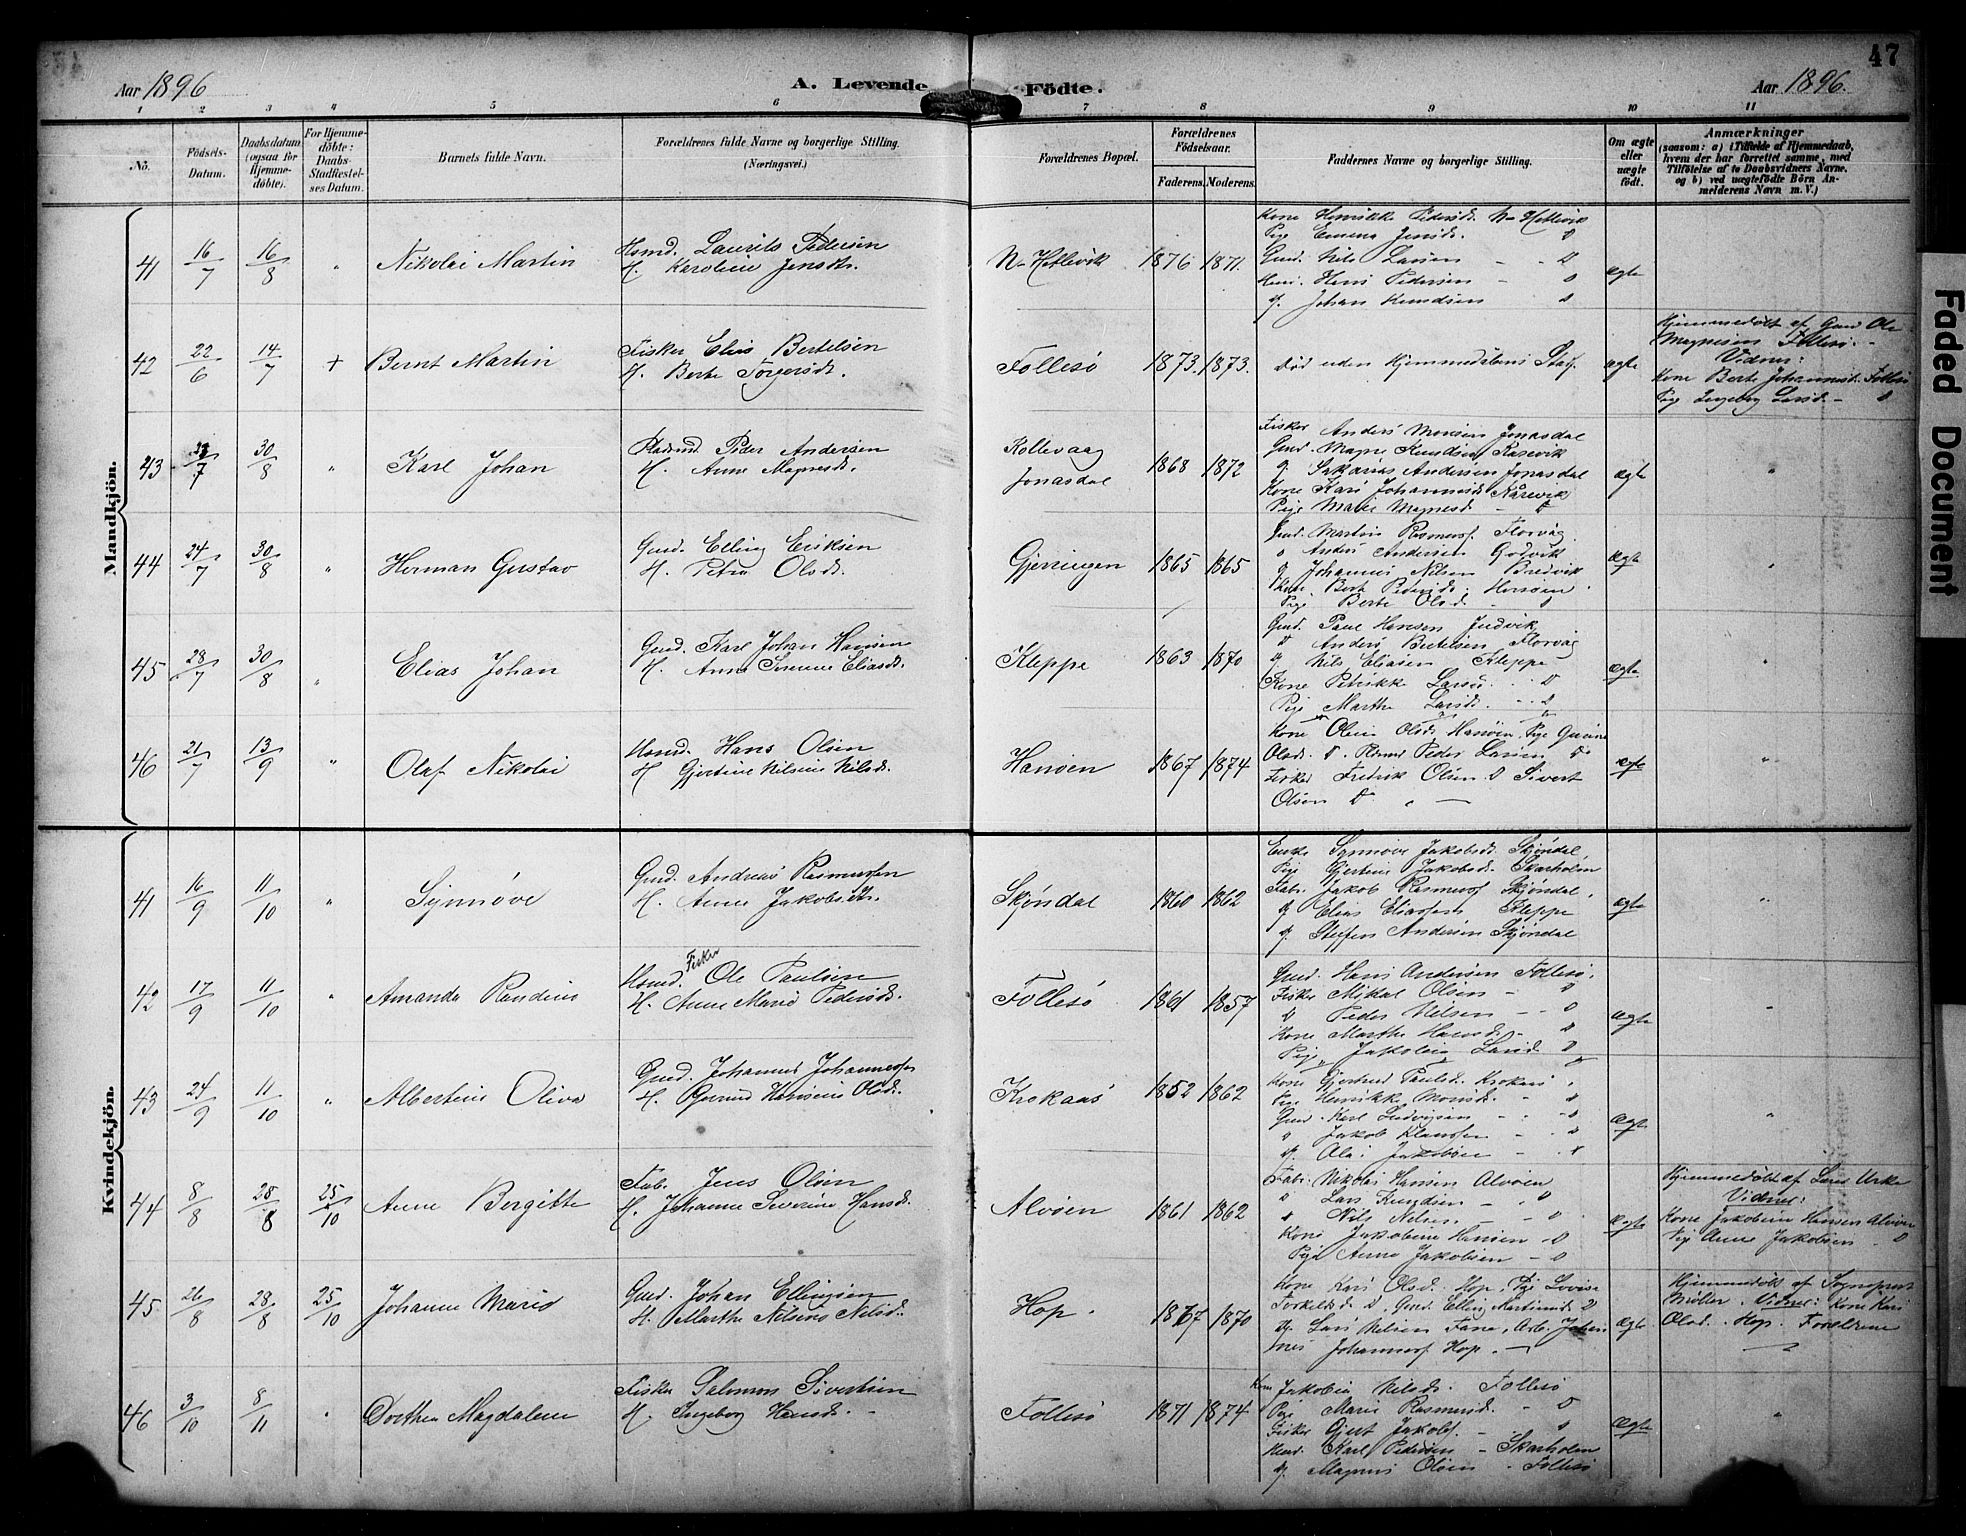 47
Aar 1896
A. Levende Födte.
Aar 1896.
1 2 3 4 5 6 7 8 9 10 11
No.
Födsels-Datum.
Daabsdatum (ogsaa for Hjemme-döbte).
For Hjemme-döbte: Daabs-Stadfæstel-ses Datum.
Barnets fulde Navn.
Forældrenes fulde Navne og borgerlige Stilling.
(Næringsvei.)
Forældrenes Bopæl.
Forældrenes Födselsaar.
Faderens. Moderens.
Faddernes Navne og borgerlige Stilling.
Om ægte eller uægte födt.
Anmærkninger
(saasom: a) i Tilfælde af Hjemmedaab, hvem der har forrettet samme, med Tilföielse af to Daabsvidners Navne, og b) ved uægtefödte Börn An-melderens Navn m. V.)
Mandkjön.
41 16/7 16/8 " Nikolai Martin
Husmd. Laurits Pedersen
H. Karoline Jensdtr.
N. Hetlevik 1876 1871.
Kone Henrikke Pedersd. N. Hetlevik
Pige Emma Jensd. D
Gmd. Nils Larsen - D
Johan Knudsen D
ægte
42 22/6 14/7 + Bernt Martin
Fisker Elias Bertelsen
H. Berte Torgersd.
Follesö 1873. 1873.
död uden Hjemmedaabens Staf.
ægte
Hjemmedöbt af Gmd Ole
Magnesen Follesö. -
Vidner:
Kone Berte Johannesd. Follesö
Pige Ingeborg Larsd. - D
43 /7 30/8 " Karl Johan
Peder Andersen
H. Anne Magnesd.
Kollevaag
Jonasdal 1868 1872
Fisker Anders Monsen Jonasdal
Gmd. Magne Knudsen
Sakarias Andersen Jonasdal
Kone Kari Johannesd.
Pige Marie Magnesd. - D
ægte "
44 24/7 30/8 " Herman Gustav
Gmd. Elling Eriksen
H. Petra Olsd.
Gjerningen 1865 1865
Gmd. Martin Rasmusf. Florvåg.
D Anders Andersen Godvik
Johannes Nilsen Bredvik
Berte Pedersd.
Pige Berte Olsd. D
ægte "
45 28/7 30/8 " Elias Johan
Gmd. Karl Johan Hansen
H. Anna Simine Eliasd.
Kleppe 1863 1870
Gmd. Paul Hansen
D Anders Bertelsen Florvåg
Nils Eliasen Kleppe
Kone Petrikke Larsd. D
Pige Marthe Larsd. D
ægte "
46 21/7 13/9 " Olaf Nikolai
Husmd. Hans Olsen
H. Gjertine Nilsine Nilsd.
Hanöen 1867 1874
Kone Oline Olsd. Hanöen, Pige
Olsd. D. Peder Larsen D
Fisker Fredrik Olsen D Sivert
Olsen D " -
ægte "
Kvindekjön.
41 16/9 11/10 " Synnöve
Gmd. Andreas Rasmussen
H. Anne Jakobsdtr.
Skjöndal 1860 1862
Enke Synnöve Jakobsd. Skjöndal
Pige Gjertine Jakobsd. Skarholm
Fabr. Jakob Rasmusf Skjöndal,
Elias Eliassen Kleppe
Steffen Andersen Skjöndal
ægte "
42 17/9 11/10 " Amanda Randine
Husmd. Fisker Ole Paulsen
H. Anne Marie Pedersd.
Follesö 1861 1857
Gmd. Hans Andersen Follesö.
Fisker Mikal Olsen - D
D Peder Nilsen - D
Kone Marthe Hansd. - D
Pige Jakobine Larsd D
ægte "
43 24/9 11/10 " Albertine Oliva
Gmd. Johannes Johannessen
H. Hansine Olsd.
Krokaas 1852 1862
Kone Gjertrud Paulsd. Krokaas
Pige Henrikke Monsd. - D
Gmd. Karl Ludvigsen - D
D Jakob Klausen - D
Ole Jakobsen -
ægte "
44 8/8 28/8 25/10 Anne Bergitte
Fab. Jens Olsen
H. Johanne Severine Hansd.
Alvöen 1861 1862
Fabr. Nikolai Hansen Alvöen
D Lars Knudsen - D
D Nils Nilsen - D
Kone Jakobine Hansen - D
Pige Anna Jakobsen - D
ægte
Hjemmedöbt af
Vidner:
Kone Jakobine Hansen Alvöen
Pige Anna Jakobsen - D
45 26/8 28/8 25/10 Johanne Marie
Gmd. Johan Ellingsen
H. Marthe Nilsine Nilsd.
Hop. 1867 1870
Kone Kari Olsd. Hop, Pige Lovise
Torkelsd. D, Gmd. Elling D
Lars Nilsen Fane, Arb. Johan-
nes Johannesf Hop. -
ægte
Hjemmedöbt af Sogneprest
Möller. Vidner: Kone Kari
Olsd. Hop. Forældrene
46 3/10 8/11 " Dorthea Magdalene
Fisker Salomon Sivertsen
H. Ingeborg Hansd. -
Follesö 1871 1874
Kone Jakobine Nilsd. Follesö
Pige Marie Rasmusd. - D
Fisker Gjert Jakobs. - D
Karl Pedersen - Skarholm
Magnus Olsen - Follesö
ægte "
Faded Document